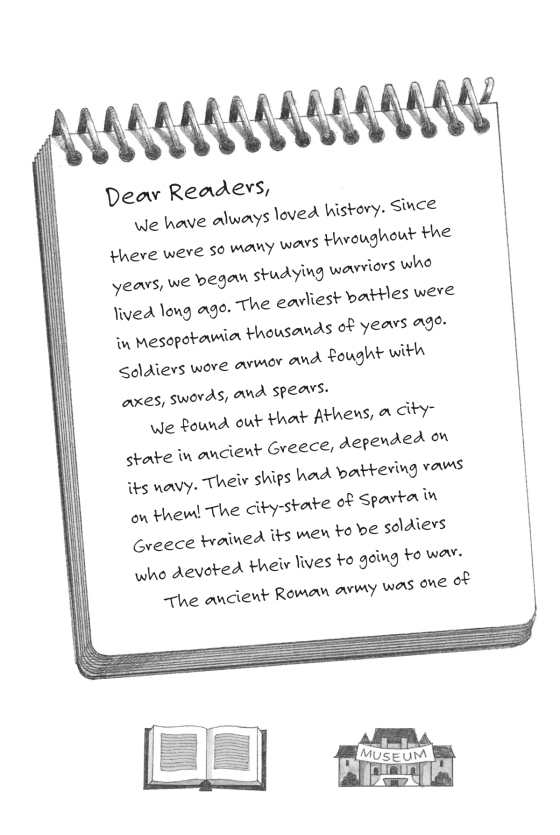 Dear Readers,
We have always loved history. Since
there were so many wars throughout the
years, we began studying warriors who
lived long ago. The earliest battles were
in Mesopotamia thousands of years ago.
Soldiers wore armor and fought with
axes, swords, and spears.
We found out that Athens, a city-
state in ancient Greece, depended on
its navy. Their ships had battering rams
on them! The city-state of Sparta in
Greece trained its men to be soldiers
who devoted their lives to going to war.
The ancient Roman army was one of
MUSEUM